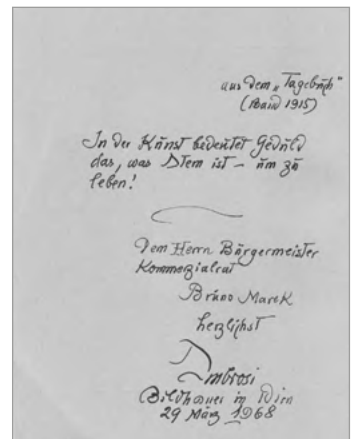 aus dem „Tagebuch"
(Band 1915)
In der Kunst bedeutet Geduld
das, was Atem ist – um zu
leben!
Dem Herrn Bürgermeister
Kommerzialrat
Bruno Marek
herzlichst
Ambrosi
Bildhauer in Wien
29 März 1968